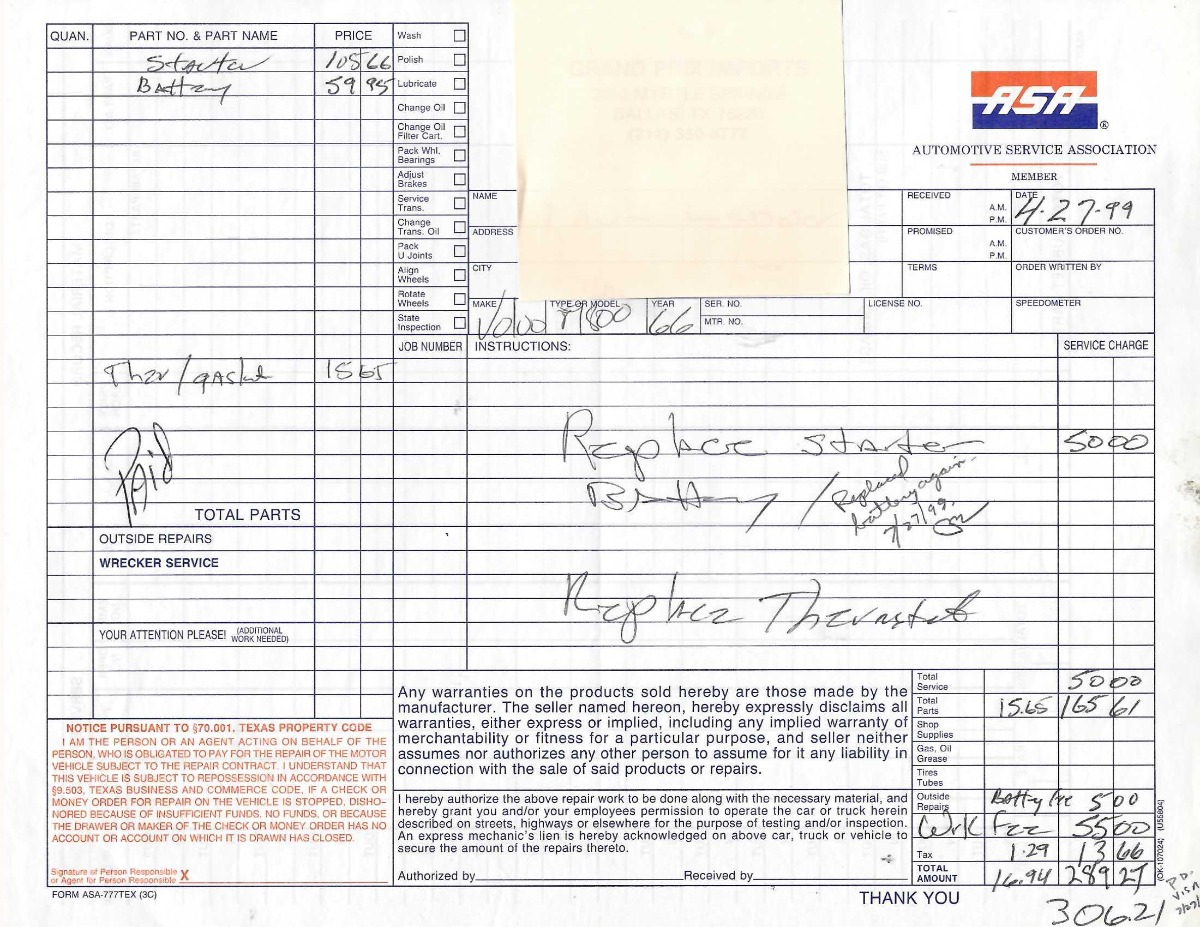 QUAN. PART NO. & PART NAME PRICE
Starter 105 66
Battery 59 95
Wash
Polish
Lubricate
Change Oil
Change Oil
Filter Cart.
Pack Whl.
Bearings
Adjust
Brakes
Service
Trans.
Change
Trans. Oil
Pack
U Joints
Align
Wheels
Rotate
Wheels
State
Inspection
ASA ®
AUTOMOTIVE SERVICE ASSOCIATION
MEMBER
NAME
ADDRESS
CITY
RECEIVED A.M. P.M.
DATE 4-27-99
PROMISED A.M. P.M.
CUSTOMER'S ORDER NO.
TERMS
ORDER WRITTEN BY
MAKE Volvo
TYPE OR MODEL P1800
YEAR 66
SER. NO.
MTR. NO.
LICENSE NO.
SPEEDOMETER
JOB NUMBER INSTRUCTIONS: SERVICE CHARGE
Ther/gasket 15 65
Replace Starter 50 00
Battery / Replaced
battery again.
7/27/99.
PAID
TOTAL PARTS
OUTSIDE REPAIRS
WRECKER SERVICE
Replace Thermostat
YOUR ATTENTION PLEASE! (ADDITIONAL
WORK NEEDED)
NOTICE PURSUANT TO §70.001, TEXAS PROPERTY CODE
I AM THE PERSON OR AN AGENT ACTING ON BEHALF OF THE
PERSON, WHO IS OBLIGATED TO PAY FOR THE REPAIR OF THE MOTOR
VEHICLE SUBJECT TO THE REPAIR CONTRACT. I UNDERSTAND THAT
THIS VEHICLE IS SUBJECT TO REPOSSESSION IN ACCORDANCE WITH
§9.503, TEXAS BUSINESS AND COMMERCE CODE, IF A CHECK OR
MONEY ORDER FOR REPAIR ON THE VEHICLE IS STOPPED, DISHO-
NORED BECAUSE OF INSUFFICIENT FUNDS, NO FUNDS, OR BECAUSE
THE DRAWER OR MAKER OF THE CHECK OR MONEY ORDER HAS NO
ACCOUNT OR ACCOUNT ON WHICH IT IS DRAWN HAS CLOSED.
Signature of Person Responsible
or Agent for Person Responsible X
FORM ASA-777TEX (3C)
Any warranties on the products sold hereby are those made by the
manufacturer. The seller named hereon, hereby expressly disclaims all
warranties, either express or implied, including any implied warranty of
merchantability or fitness for a particular purpose, and seller neither
assumes nor authorizes any other person to assume for it any liability in
connection with the sale of said products or repairs.
I hereby authorize the above repair work to be done along with the necessary material, and
hereby grant you and/or your employees permission to operate the car or truck herein
described on streets, highways or elsewhere for the purpose of testing and/or inspection.
An express mechanic's lien is hereby acknowledged on above car, truck or vehicle to
secure the amount of the repairs thereto.
Authorized by Received by
Total
Service 50 00
Total
Parts 15.65 165 61
Shop
Supplies
Gas, Oil
Grease
Tires
Tubes
Outside
Repairs Batty fee 5 00
Work Fee 55 00
Tax 1.29 13 66
TOTAL
AMOUNT 16.94 289 27
(OK-107024) (U55904)
THANK YOU
306.21
PD.
VISA